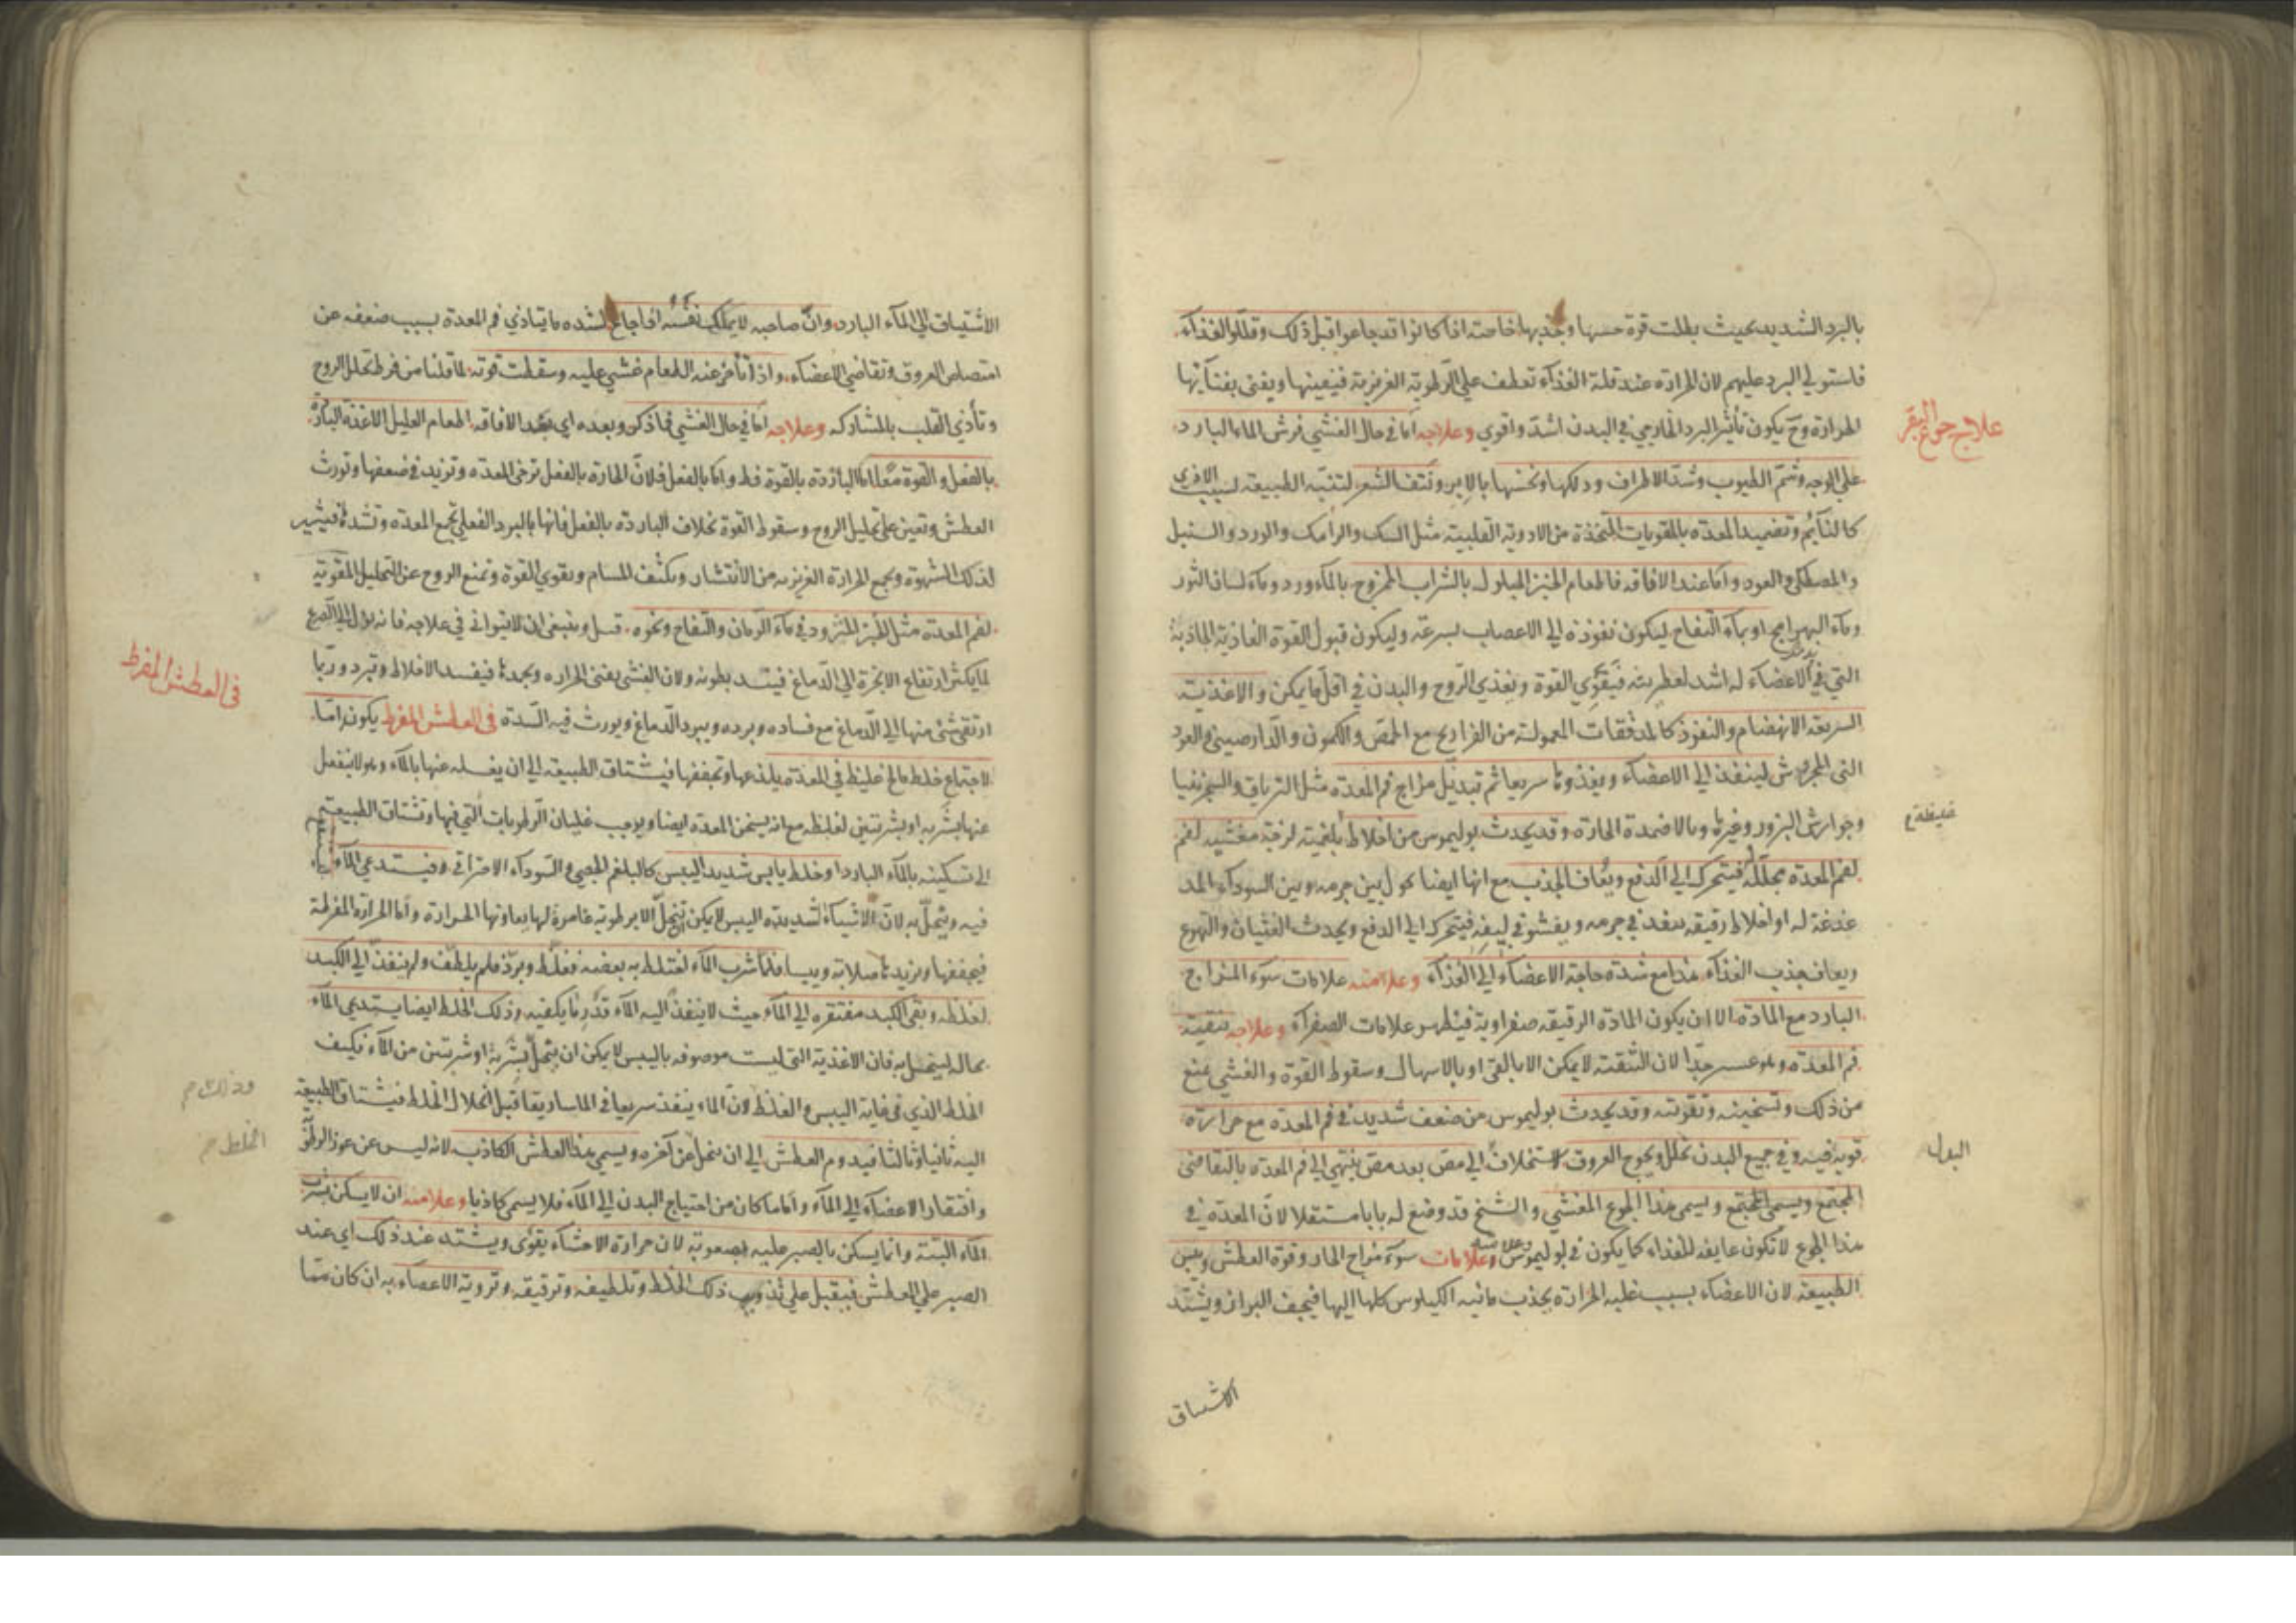 بالبرد الشديد بحيث بطلت قوة حسها وجذبها خاصته اذا كانوا قد جاعوا قبل ذلك وقللوا الغذاء
فاستولي البرد عليهم لان الحرارة عند قلة الغذآء تعطف علي الرطوبة الغريزية فيفنيها ويفني بفنآئها
علاج جوع البقر
الحرارة وح يكون تأثير البرد الخارجي في البدن اشد واقوي وعلاجه اما في حال الغشي فرش الماء البارد
علي الوجه وشم الطيوب وشد الاطراف ودلكها ونخسها بالابر ونتف الشعر لتنبه الطبيعة
كالنآئم وتضميد المعدة بالمقويات المتخذة من الادوية القلبية مثل السك والرامك والورد والسنبل
والمصطكي والعود واما عند الافاقه فاطعام الخبز المبلول بالشراب الممزوج بالمآءورد ومآء لسان الثور
ومآء البهرامج او بمآء التفاح ليكون نفوذه الي الاعصاب بسرعة وليكون قبول القوة الغاذية الجاذبة
التي في الاعضآء له اشد لعطريته فيقوي القوة ويغذي الروح والبدن في اقل ما يمكن والاغذية
السريعة الانهضام والنفوذ كالمدققات المعمولة من الفراريج مع الحمص والكمون والدارصيني والعود
الني المجروش لينفذ الي الاعضآء ويغذوها سريعا ثم تبديل مزاج فم المعدة مثل الترياق والسجزنيا
وجوارش البزور وغيرها وبالاضمدة الحارة وقد يحدث بوليموس من اخلاط بلغمية لزجة مغشيه لفم
لفم المعدة محللة فيتحرك الي الدفع ويعاف الجذب مع انها ايضا تحول بين جرمه وبين السودآء المد
غدغة له او اخلاط رقيقه تنفذ في جرمه ويفشو في ليفه فيتحرك الي الدفع ويحدث الغثيان والتهوع
ويعاف جذب الغذآء هذا مع شدة حاجة الاعضآء الي الغذآء وعلامته علامات سوء المزاج
البارد مع المادة الا ان يكون المادة الرقيقة صفراوية فيظهر علامات الصفرآء وعلاجه تنقية
فم المعدة وهو عسر جدا لان التنقية لا يمكن الا بالقئ او بالاسهال وسقوط القوة والغشي يمنع
من ذلك وتسخينه وتقوته وقد يحدث بوليموس من ضعف شديد في فم المعدة مع حرارة
قوية فيه وفي جميع البدن تحلل ويحوج العروق لاستخلاف الي مص بعد مص ينتهي الي فم المعدة بالتقاضي
البدل
المجتمع ويسمي هذا الجوع المغشي والشيخ قد وضع له بابا مستقلا لان المعدة في
هذا الجوع لا تكون عايفه للغذاء كما يكون في بوليموس وعلامات سوء مزاج الحار وقوة العطش ويبس
الطبيعة لان الاعضآء بسبب غلبة الحرارة يجذب مائية الكيلوس كلها اليها فيجف البراز ويشتد
الاشتياق
الاشتياق الي المآء البارد وان صاحبه لا يملك نفسه اذا جاع لشده ما يتاذي فم المعدة بسبب ضعفه عن
امتصاص العروق وتقاضي الاعضاء واذا تأخر عنه الطعام غشي عليه وسقطت قوته لما قلنا من فرط تحلل الروح
وتأذي القلب بالمشاركه وعلاجه اما في حال الغشي فما ذكر وبعده اي بعد الافاقه اطعام العليل الاغذية الباردة
بالفعل والقوة معا اما الباردة بالقوة فظ واما بالفعل فلان الحارة بالفعل ترخي المعده وتزيد في ضعفها وتورث
العطش وتعين علي تحليل الروح وسقوط القوة بخلاف الباردة بالفعل فانها بالبرد الفعلي تجمع المعدة وتشدها فيثير
لذلك الشهوة ويجمع الحرارة الغريزية من الانتشار ويكثف المسام ويقوي القوة وتمنع الروح عن التحليل المقوية
لفم المعدة مثل الخبز المثرود في مآء الرمان والتفاح ونحوه قيل وينبغي ان لا يتواني في علاجه فانه يؤل الي الصرع
لما يكثر ارتفاع الابخرة الي الدماغ فيتسد بطونه ولان الغشي يفني الحراره ويجمدها فيفسد الاخلاط وتبرد وربما
في العطش المفرط
ارتقي شئ منها الي الدماغ مع فساده وبرده ويبرد الدماغ ويورث فيه السدة في العطش المفرط يكون اما
لاجتماع خلط مالح غليظ في المعدة يلذعها ويجففها فيشتاق الطبيعة الي ان يغسله عنها بالمآء وهو لا ينغسل
عنها بشربة او بشربتين لغلظه مع انه يسخن المعدة ايضا ويوجب غليان الرطوبات التي فيها وتشتاق الطبيعة
الي تسكينه بالمآء البارد او خلط يابس شديد اليبس كالبلغم الجصي والسودآء الاحتراقي وفيستدعي المآء
فيه ويتحل به لان الاشياء الشديدة اليبس لا يمكن تنحل الا برطوبة غامرة لها يعاونها الحرارة واما الحرارة المفرطة
فيجففها ويزيدها صلابة ويبسا فلما شرب المآء اختلط به بعضه فغلظ وبرد فلم يلطف ولم ينفذ الي الكبد
لغلظه وبقي الكبد مفتقره الي المآء حيث لا ينفذ اليه المآء قدر ما يكفيه وذلك الخلط ايضا يستدعي المآء
بحاله ليتحل به فان الاغذية التي ليست موصوفه باليبس لا يمكن ان يتحل بشربة او شربتين من المآء فكيف
وذلك
الخلط الذي في غاية اليبس والغلظ ولان الماء ينفذ سريعا في الماساريقا قبل انحلال الخلط فيشتاق الطبيعة
الخلط
اليه ثانيا وثالثا فيدوم العطش الي ان ينحل عن آخره ويسمي هذا العطش الكاذب لانه ليس عن عوز
وافتقار الاعضآء الي المآء واما ما كان من احتياج البدن الي المآء فلا يسمي كاذبا وعلامته ان لا يسكن بشرب
المآء البتة وانما يسكن بالصبر عليه بصعوبة لان حرارة الاحشآء يقوي ويشتد عند ذلك اي عند
الصبر علي العطش فيقبل علي تذويب ذلك الخلط وتلطيفه وترقيقه وتروية الاعضآء به ان كان مما